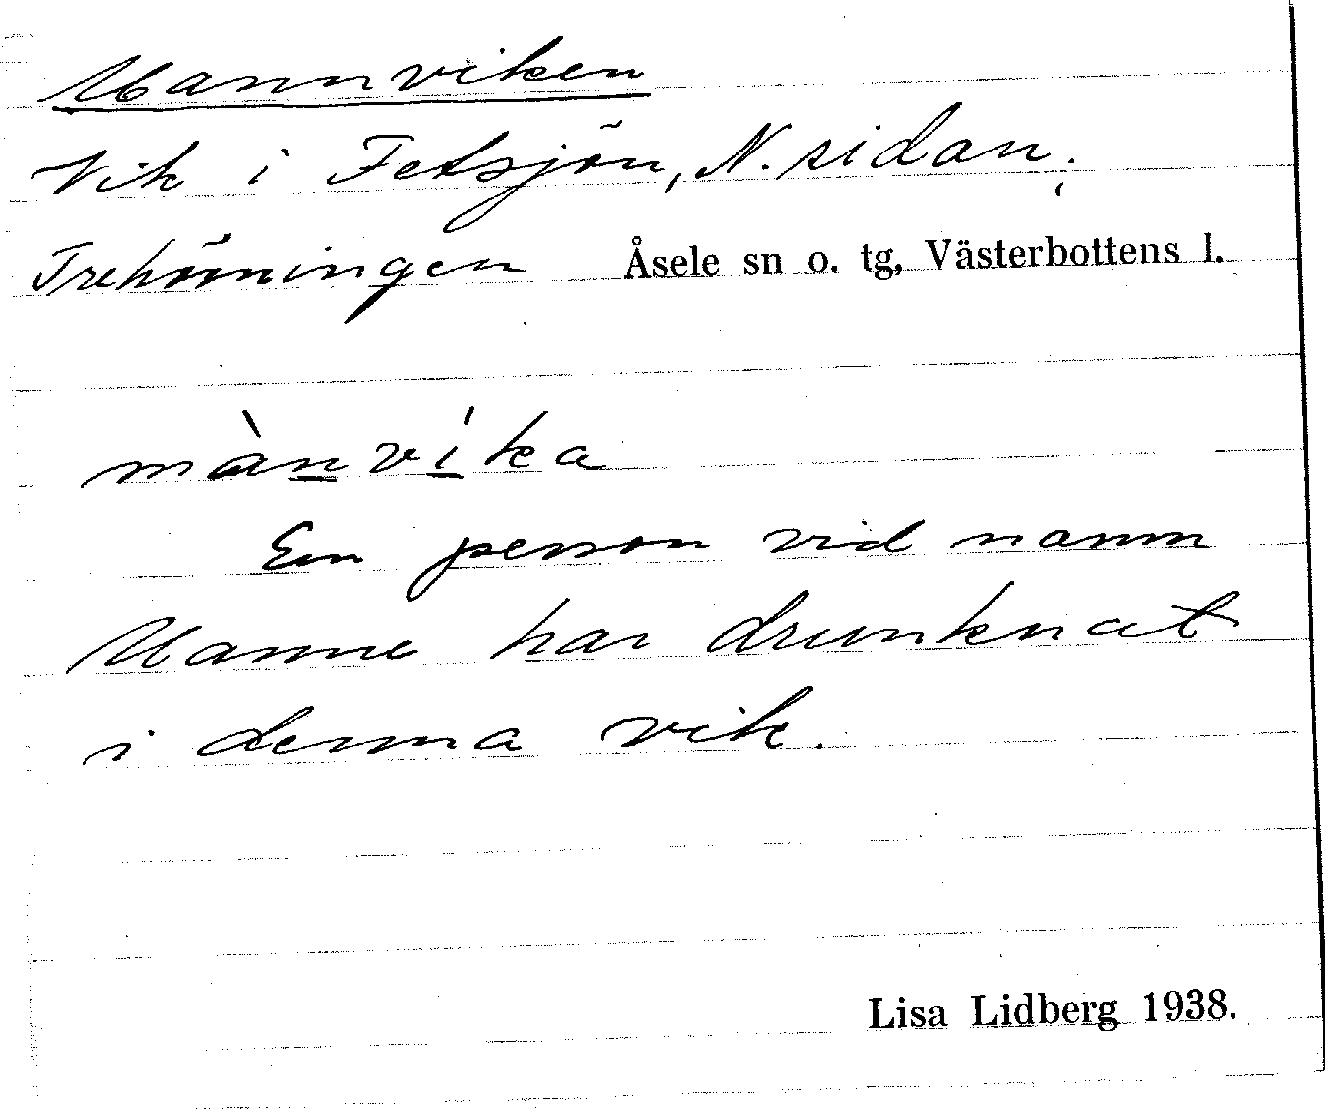 Mannviken
Vik i Fetsjön, N. sidan,
Trehörningen Åsele sn o. tg, Västerbottens l.
mànvíka
En person vid namn
Manne har drunknat
i denna vik.
Lisa Lidberg 1938.